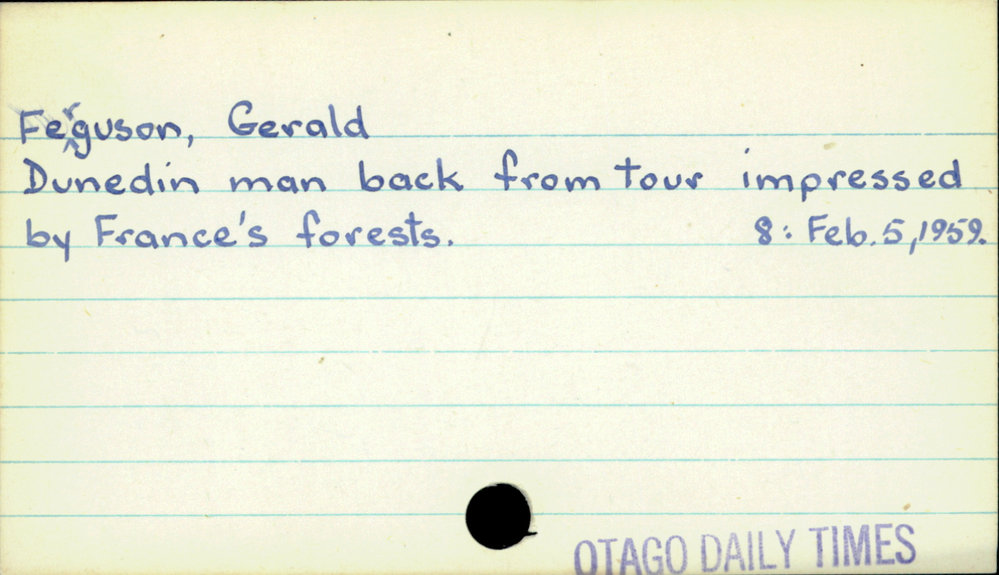 Ferguson, Gerald
Dunedin man back from tour impressed
by France's forests. 8: Feb. 5, 1959.
OTAGO DAILY TIMES